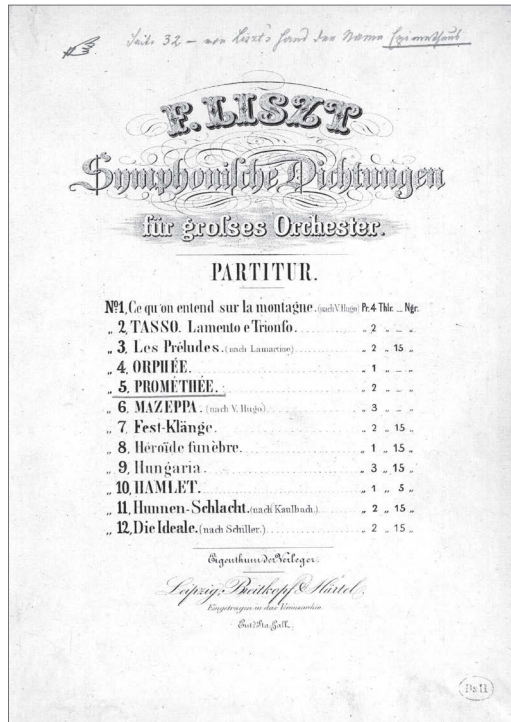 Seite 32 – von Liszt's Hand der Name Epimetheus
F. LISZT
Symphoniſche Dichtungen
für groſses Orcheſter.
PARTITUR.
No 1, Ce qu'on entend sur la montagne. (nach V. Hugo) Pr. 4 Thlr. _ Ngr.
„ 2, TASSO. Lamento e Trionfo. „ 2 „ _ „
„ 3, Les Préludes. (nach Lamartine) „ 2 „ 15 „
„ 4, ORPHÉE. „ 1 „ _ „
„ 5, PROMÉTHÉE. „ 2 „ _ „
„ 6, MAZEPPA. (nach V. Hugo) „ 3 „ _ „
„ 7, Fest-Klänge. „ 2 „ 15 „
„ 8, Héroïde funèbre. „ 1 „ 15 „
„ 9, Hungaria. „ 3 „ 15 „
„ 10, HAMLET. „ 1 „ 5 „
„ 11, Hunnen-Schlacht. (nach Kaulbach.) „ 2 „ 15 „
„ 12, Die Ideale. (nach Schiller.) „ 2 „ 15 „
Eigenthum der Verleger.
Leipzig, Breitkopf & Härtel.
Eingetragen in das Vereinsarchiv.
Ent. Sta. Hall.